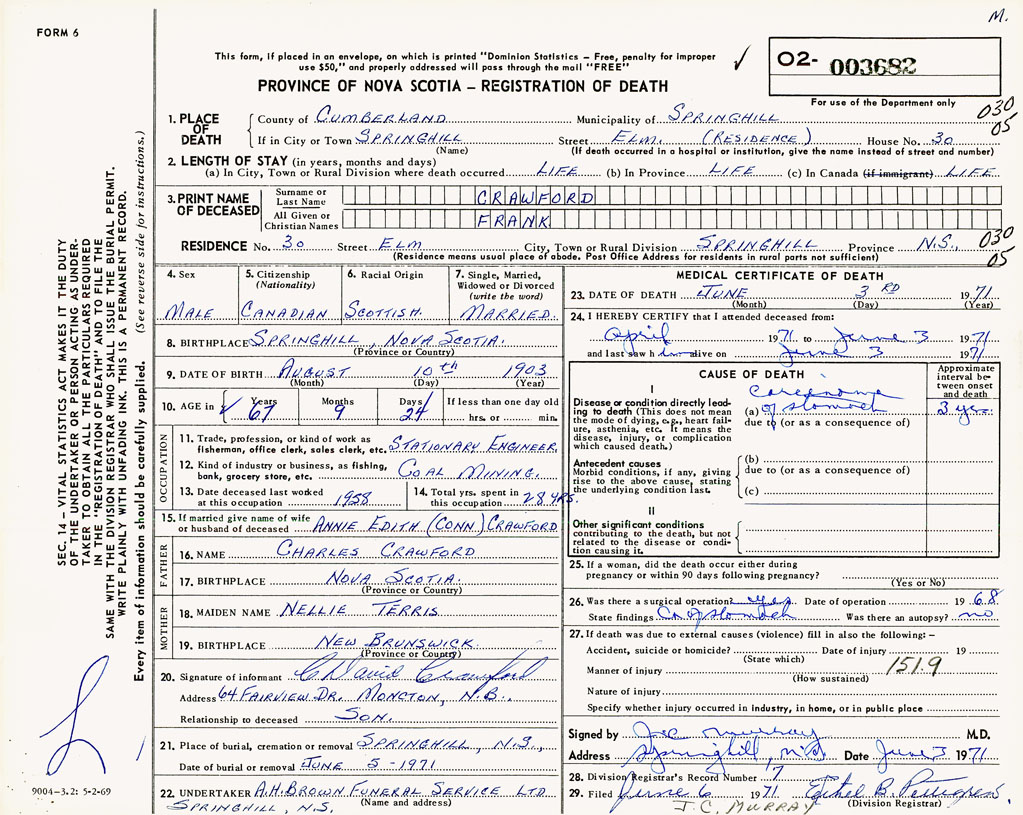 M.
FORM 6
This form, if placed in an envelope, on which is printed "Dominion Statistics – Free, penalty for improper
use $50," and properly addressed will pass through the mail "FREE"
✓
02- 003682
PROVINCE OF NOVA SCOTIA – REGISTRATION OF DEATH
For use of the Department only
030
05
1. PLACE OF DEATH
County of CUMBERLAND Municipality of SPRINGHILL
If in City or Town SPRINGHILL Street ELM. (RESIDENCE) House No. 30
(Name) (If death occurred in a hospital or institution, give the name instead of street and number)
2. LENGTH OF STAY (in years, months and days)
(a) In City, Town or Rural Division where death occurred LIFE (b) In Province LIFE (c) In Canada (if immigrant) LIFE.
3. PRINT NAME OF DECEASED
Surname or Last Name CRAWFORD
All Given or Christian Names FRANK
RESIDENCE No. 30 Street ELM City, Town or Rural Division SPRINGHILL Province N.S., 030
05
(Residence means usual place of abode. Post Office Address for residents in rural parts not sufficient)
SEC. 14 – VITAL STATISTICS ACT MAKES IT THE DUTY
OF THE UNDERTAKER OR PERSON ACTING AS UNDER-
TAKER TO OBTAIN ALL THE PARTICULARS REQUIRED
IN THE "REGISTRATION OF DEATH" AND TO FILE THE
SAME WITH THE DIVISION REGISTRAR WHO SHALL ISSUE THE BURIAL PERMIT.
WRITE PLAINLY WITH UNFADING INK. THIS IS A PERMANENT RECORD.
Every item of information should be carefully supplied. (See reverse side for instructions.)
4. Sex
MALE
5. Citizenship
(Nationality)
CANADIAN
6. Racial Origin
SCOTTISH.
7. Single, Married,
Widowed or Divorced
(write the word)
MARRIED.
8. BIRTHPLACE SPRINGHILL, NOVA SCOTIA.
(Province or Country)
9. DATE OF BIRTH AUGUST 10th 1903
(Month) (Day) (Year)
10. AGE in ✓ Years 67 Months 9 Days 24 If less than one day old
hrs. or min.
OCCUPATION
11. Trade, profession, or kind of work as
fisherman, office clerk, sales clerk, etc. STATIONARY ENGINEER
12. Kind of industry or business, as fishing,
bank, grocery store, etc. COAL MINING.
13. Date deceased last worked
at this occupation 1958
14. Total yrs. spent in
this occupation 28 YRS.
15. If married give name of wife
or husband of deceased ANNIE EDITH (CONN) CRAWFORD
FATHER
16. NAME CHARLES CRAWFORD
17. BIRTHPLACE NOVA SCOTIA.
(Province or Country)
MOTHER
18. MAIDEN NAME NELLIE TERRIS
19. BIRTHPLACE NEW BRUNSWICK.
(Province or Country)
20. Signature of informant C David Crawford
Address 64 FAIRVIEW DR. MONCTON, N.B.,
Relationship to deceased SON.
21. Place of burial, cremation or removal SPRINGHILL, N.S.,
Date of burial or removal JUNE 5 - 1971
22. UNDERTAKER A.H. BROWN FUNERAL SERVICE LTD
(Name and address)
SPRINGHILL, N.S.
9004-3.2: 5-2-69
MEDICAL CERTIFICATE OF DEATH
23. DATE OF DEATH JUNE 3 RD 1971
(Month) (Day) (Year)
24. I HEREBY CERTIFY that I attended deceased from:
April 1971 to June 3 1971
and last saw h im alive on June 3 1971
CAUSE OF DEATH
Approximate
interval be-
tween onset
and death
I
Disease or condition directly lead-
ing to death (This does not mean
the mode of dying, e.g., heart fail-
ure, asthenia, etc. It means the
disease, injury, or complication
which caused death.)
(a) of stomach
3 yrs.
due to (or as a consequence of)
Antecedent causes
Morbid conditions, if any, giving
rise to the above cause, stating
the underlying condition last.
(b)
due to (or as a consequence of)
(c)
II
Other significant conditions
contributing to the death, but not
related to the disease or condi-
tion causing it.
25. If a woman, did the death occur either during
pregnancy or within 90 days following pregnancy?
(Yes or No)
26. Was there a surgical operation? yes Date of operation 1968
State findings Ca of stomach Was there an autopsy? no
27. If death was due to external causes (violence) fill in also the following: –
Accident, suicide or homicide? Date of injury 19
(State which)
Manner of injury 151.9
(How sustained)
Nature of injury
Specify whether injury occurred in industry, in home, or in public place
Signed by J.C. Murray M.D.
Address Springhill, N.S. Date June 3 1971
28. Division Registrar's Record Number 17
29. Filed June 6 1971
(Division Registrar)
J.C. MURRAY